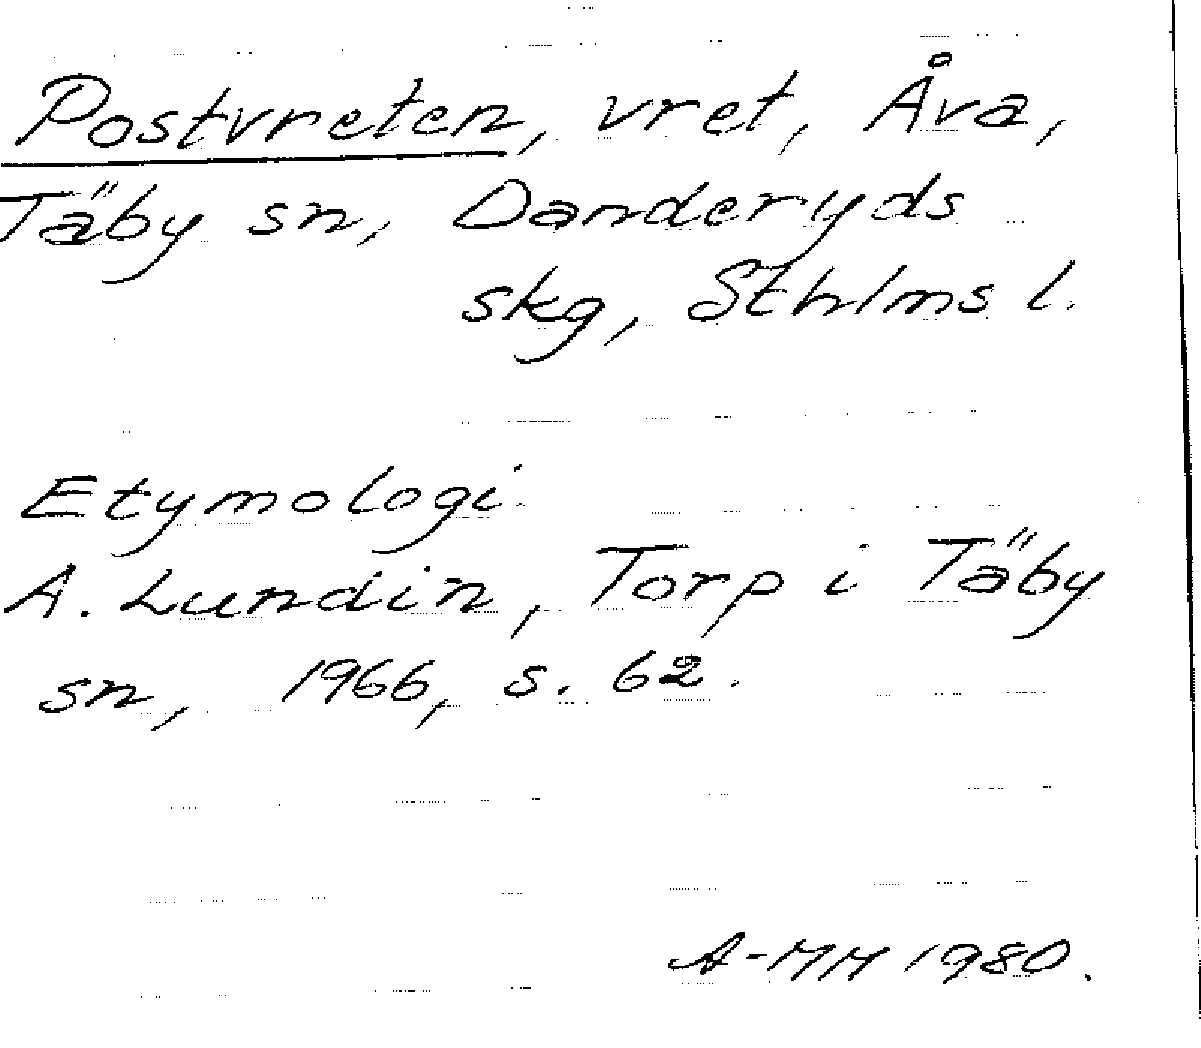 Postvreten, vret, Åva,
Täby sn, Danderyds
skg, Sthlms l.
Etymologi
A. Lundin, Torp i Täby
sn, 1966, s. 62.
A-MM 1980.